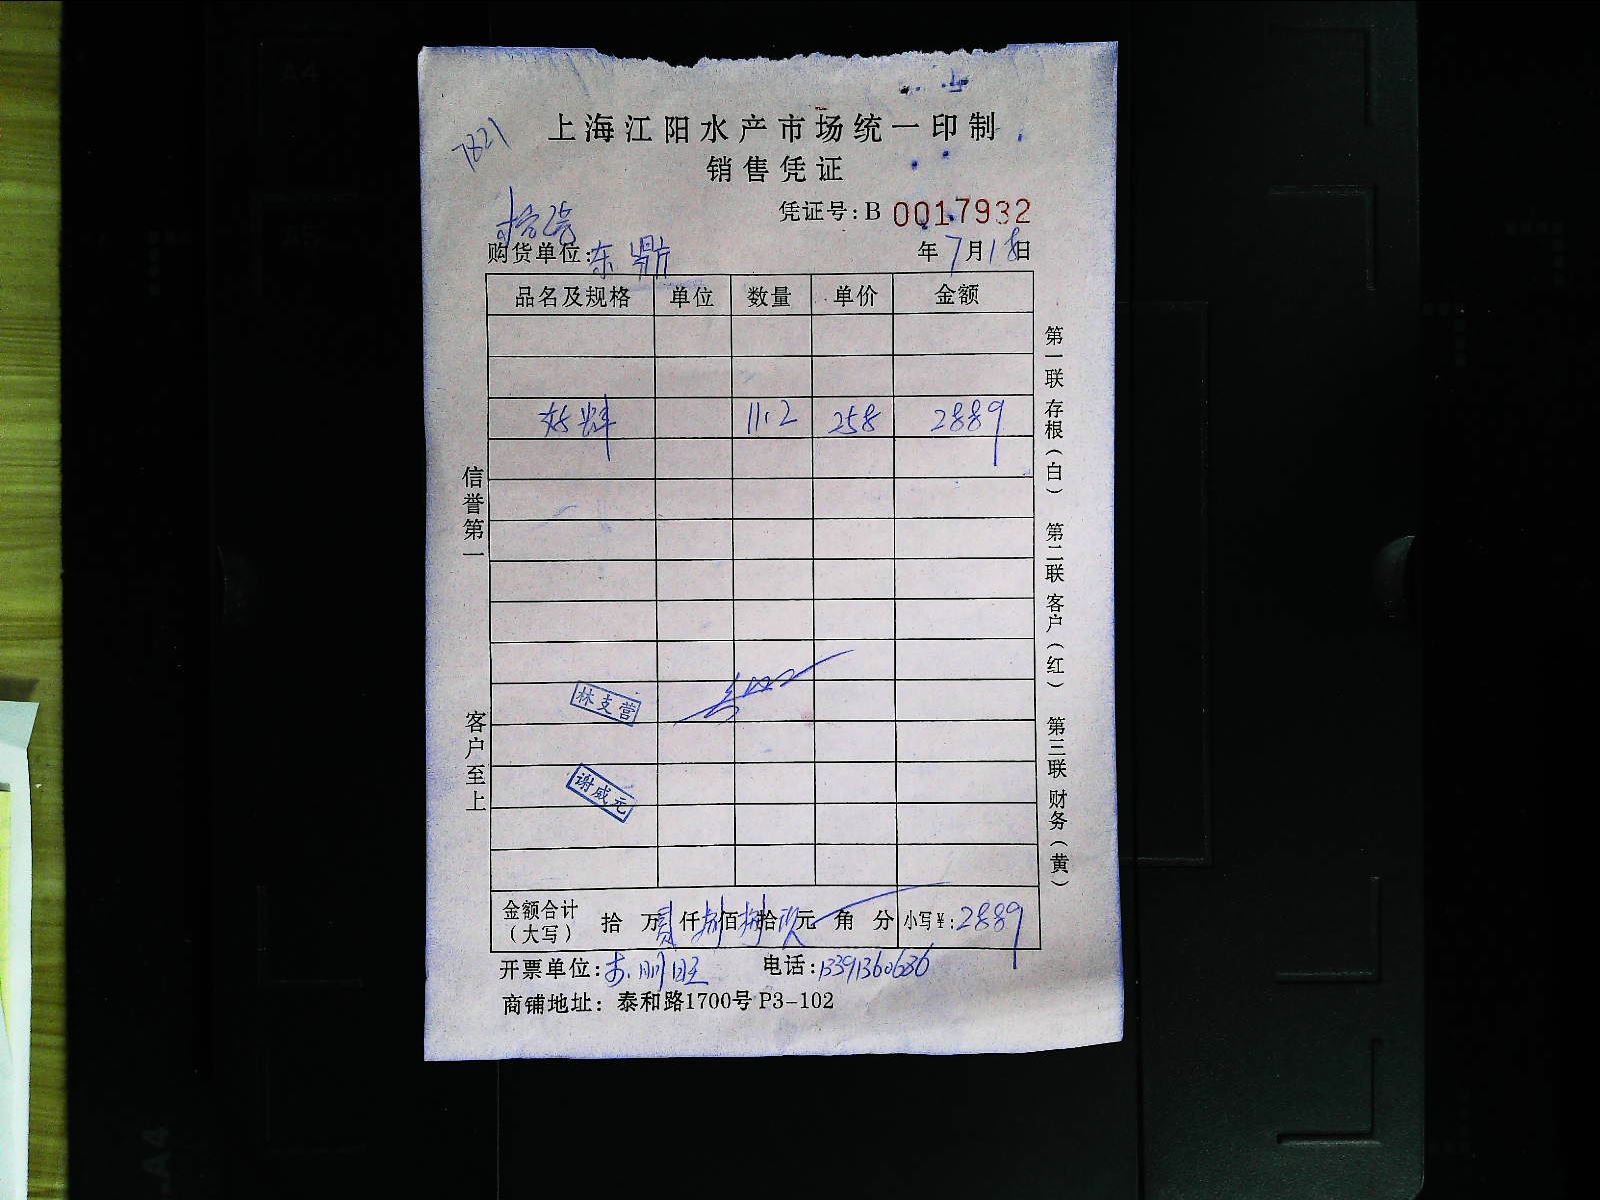 7821
上海江阳水产市场统一印制
销售凭证
凭证号:B 0017932
购货单位:东鼎
年7月18日
品名及规格 单位 数量 单价 金额
11.2 258 2889
信誉第一
客户至上
第一联 存根(白) 第二联 客户(红) 第三联 财务(黄)
林支营
谢威元
金额合计(大写) 拾 万贰仟捌佰捌拾玖元 角 分 小写¥:2889
开票单位: 电话:13391360636
商铺地址: 泰和路1700号 P3-102